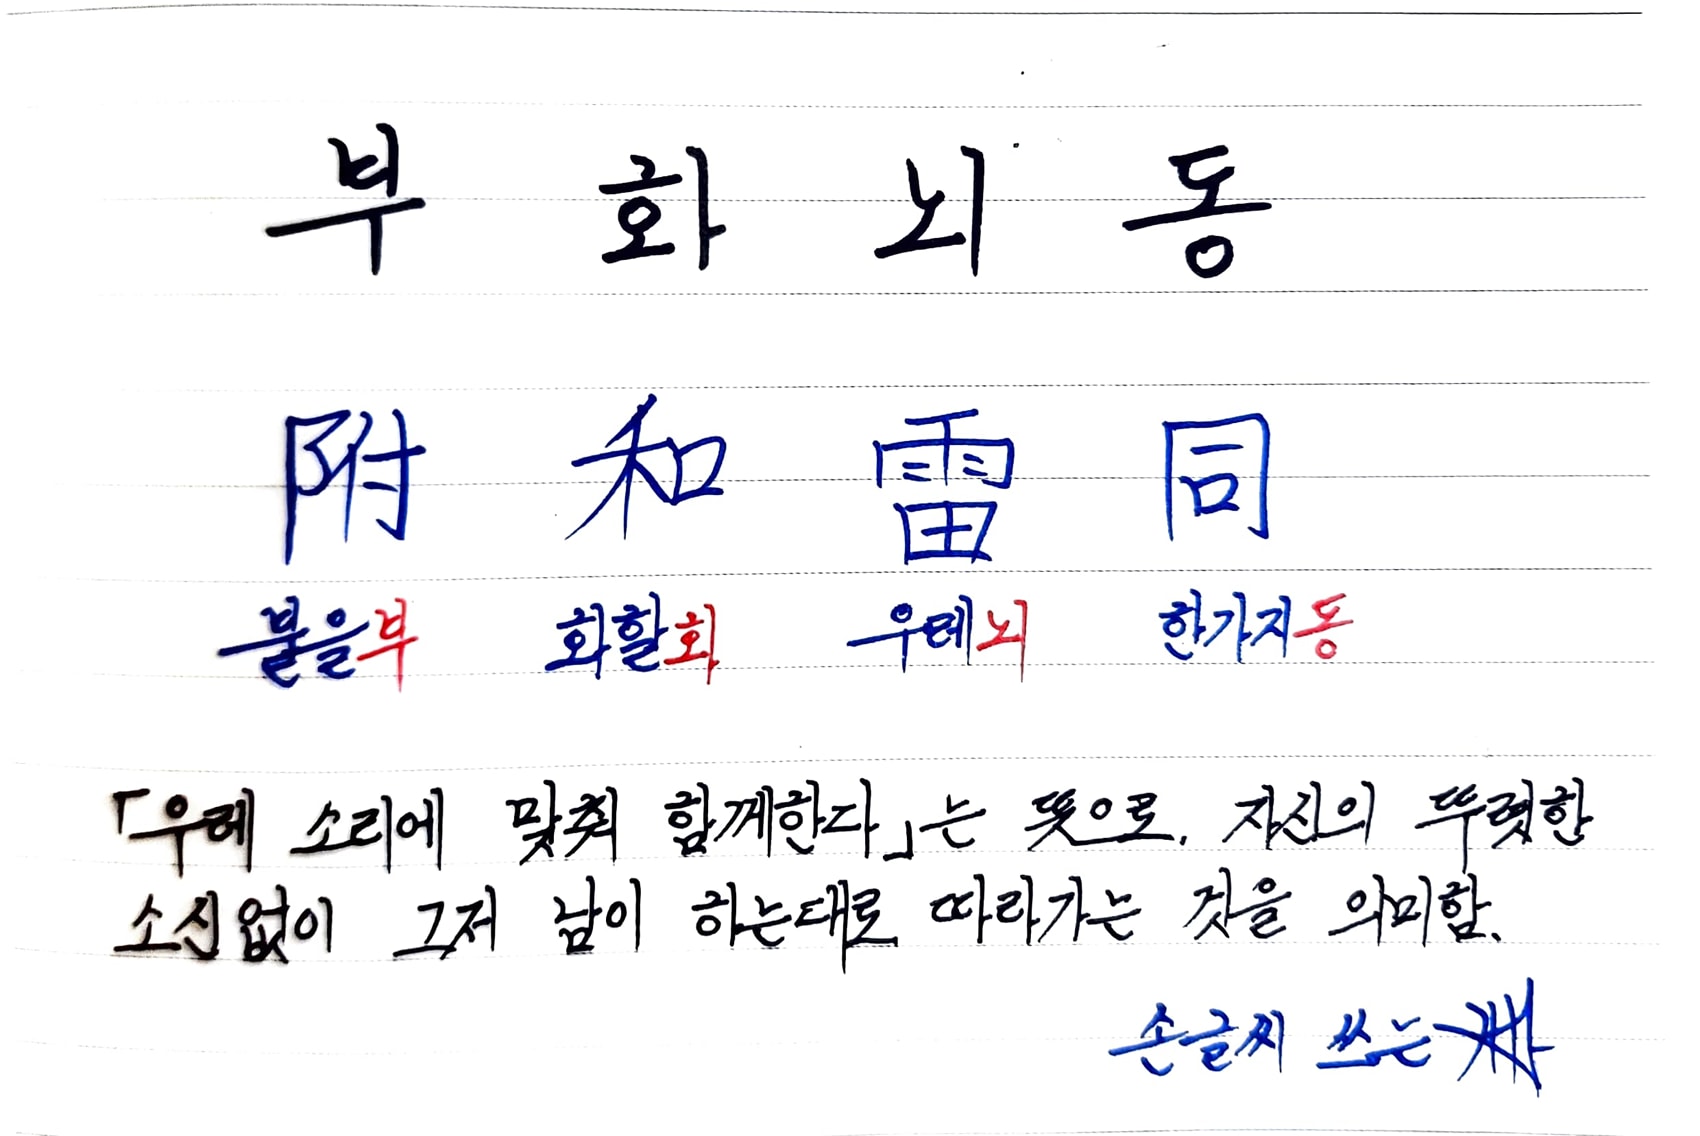 부 화 뇌 동
附 和 雷 同
붙을부 화할화 우레뇌 한가지동
「우레 소리에 맞춰 함께한다」는 뜻으로, 자신의 뚜렷한
소신없이 그저 남이 하는대로 따라가는 것을 의미함.
손글씨 쓰는